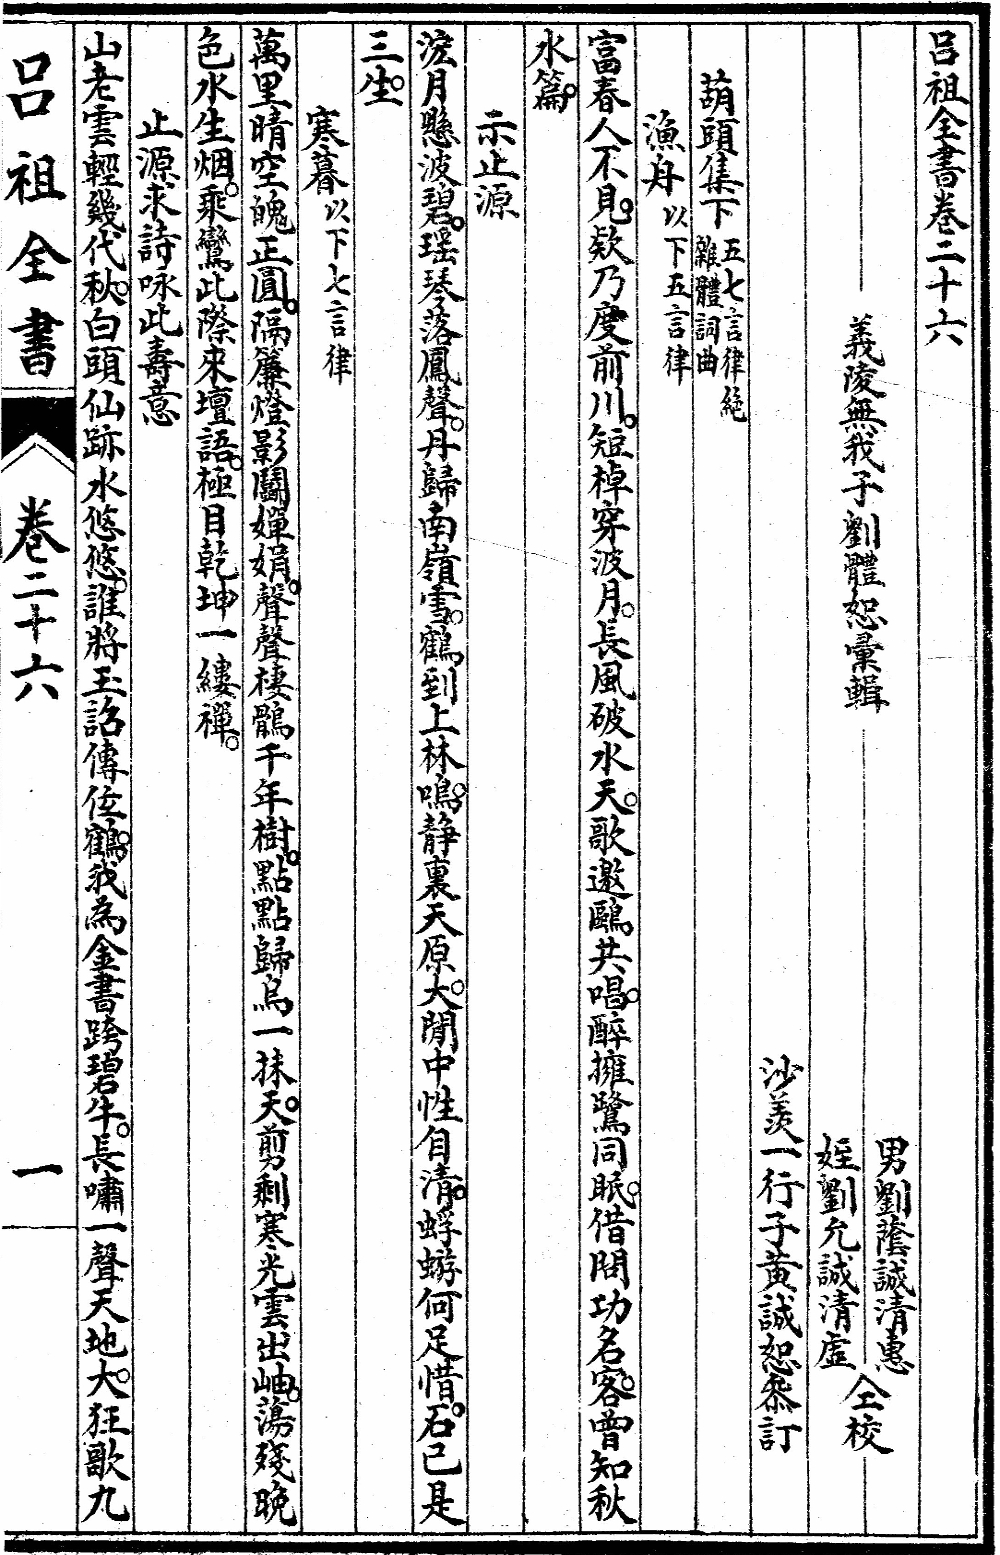 呂祖全書卷二十六
義陵無我子劉體恕彙輯
男劉蔭誠清惠
姪劉允誠清虛
仝校
沙羨一行子黃誠恕叅訂
葫頭集下五七言律絕
雜體詞曲
漁舟以下五言律
富春人不見。欵乃度前川。短棹穿波月。長風破水天。歌邀鷗共唱。醉擁鷺同眠。借問功名客。曾知秋
水篇。
示止源
浤月懸波碧。瑶琴落鳳聲。丹歸南嶺雪。鶴到上林鳴。静裏天原大。閒中性自清。蜉蝣何足惜。石已是
三生。
寒暮以下七言律
萬里晴空魄正圓。隔簾燈影鬭嬋娟。聲聲棲鶻千年樹。點點歸烏一抹天。剪剩寒光雲出岫。蕩殘晚
色水生烟。乘鸞此際來壇語。極目乾坤一縷禪。
止源求詩咏此壽意
山老雲輕幾代秋。白頭仙跡水悠悠。誰將玉詔傳位鶴。我為金書跨碧牛。長嘯一聲天地大。狂歌九
呂祖全書
卷二十六
一